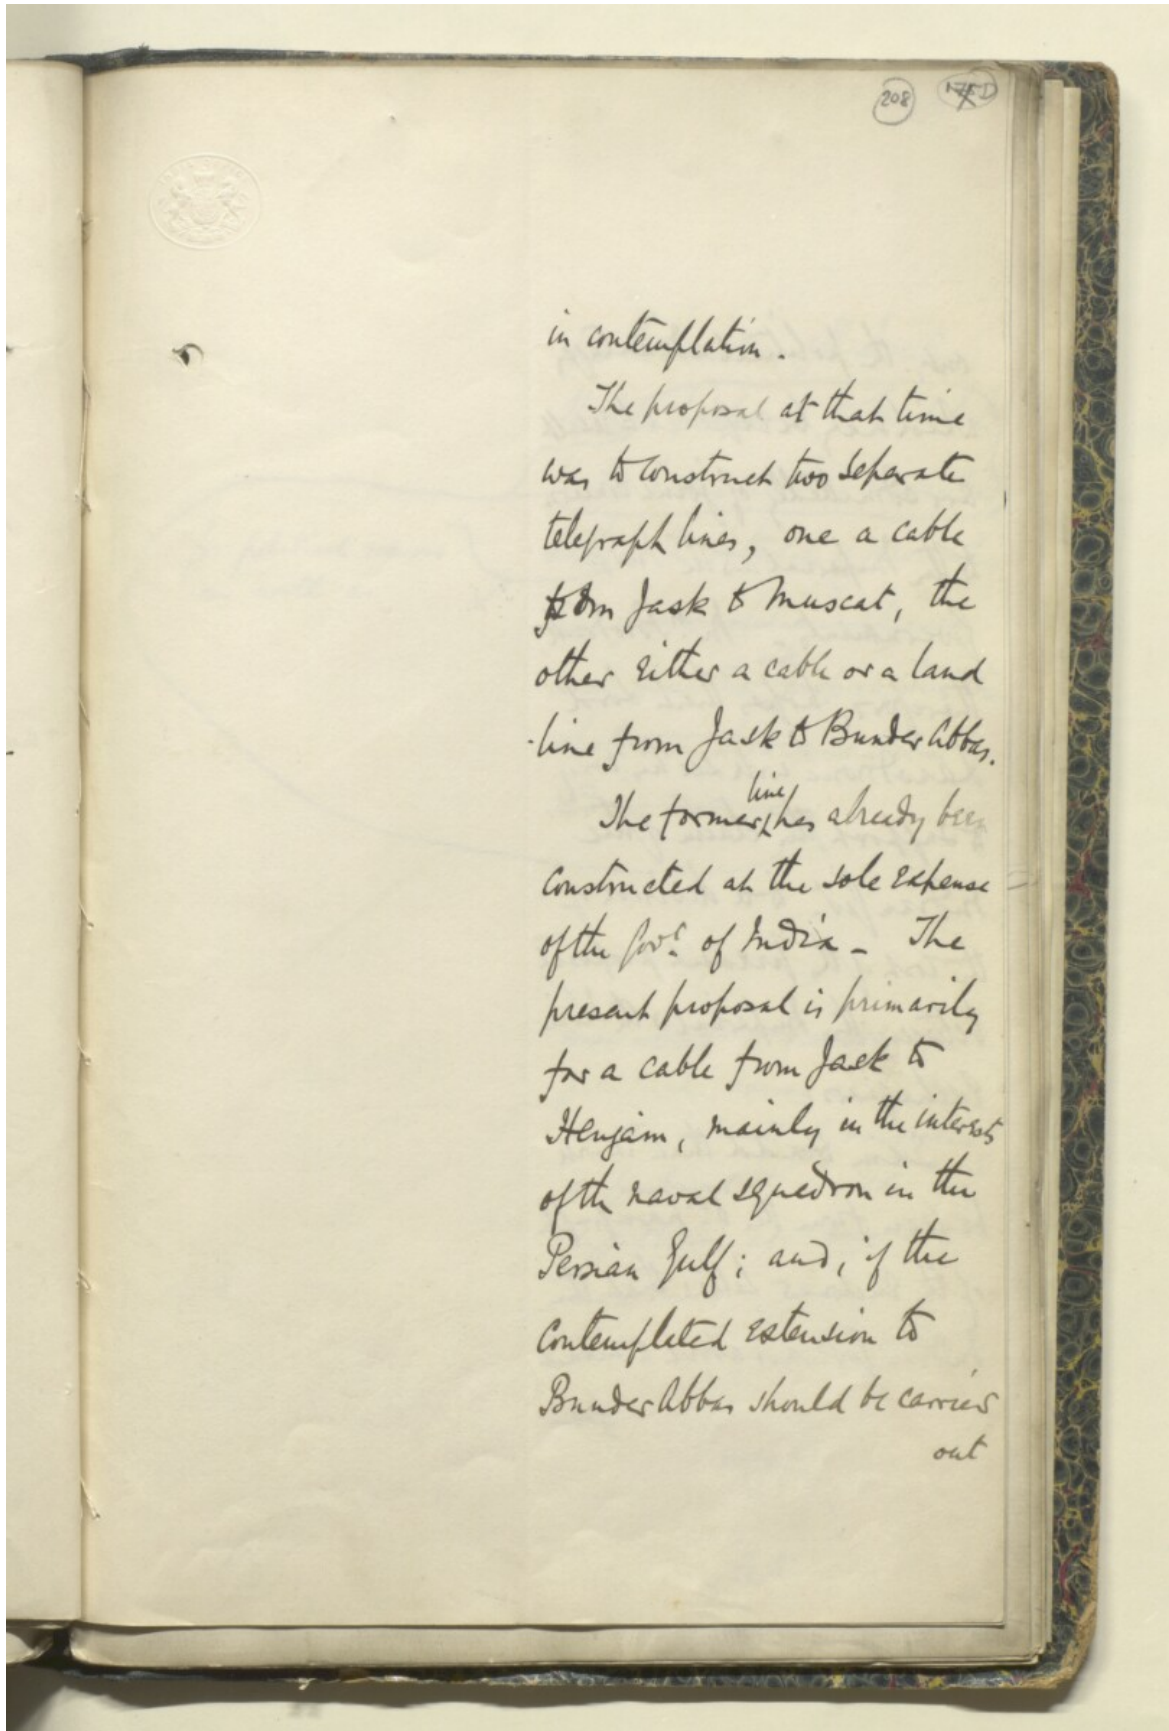 208 175D
in contemplation.
The proposal at that time
was to construct two separate
telegraph lines, one a cable
from Jask to Muscat, the
other either a cable or a land
-line from Jask to Bunder Abbas.
The former line has already been
constructed at the sole expense
of the Govt. of India - The
present proposal is primarily
for a cable from Jask to
Henjam, mainly in the interests
of the naval squadron in the
Persian Gulf; and, if the
contemplated extension to
Bunder Abbas should be carried
out